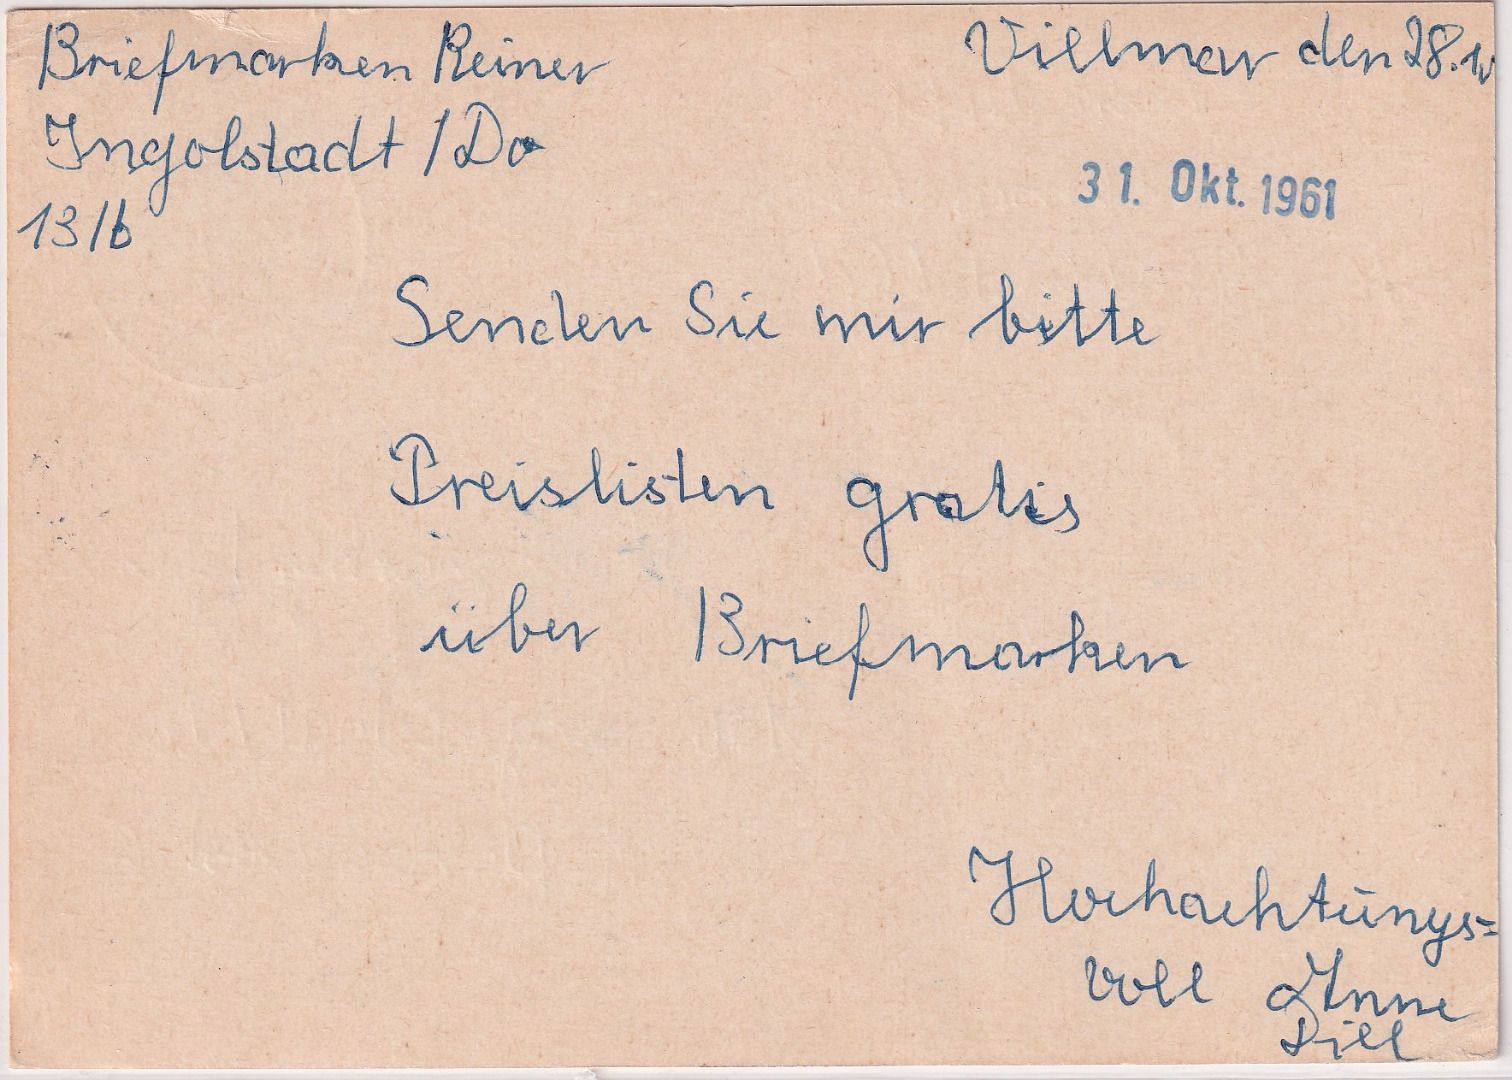 Briefmarken Reiner
Villmar den 28.10
Ingolstadt / Do
31. Okt. 1961
13/b
Senden Sie mir bitte
Preislisten gratis
über Briefmarken
Hochachtungs=
voll Anne
Dill